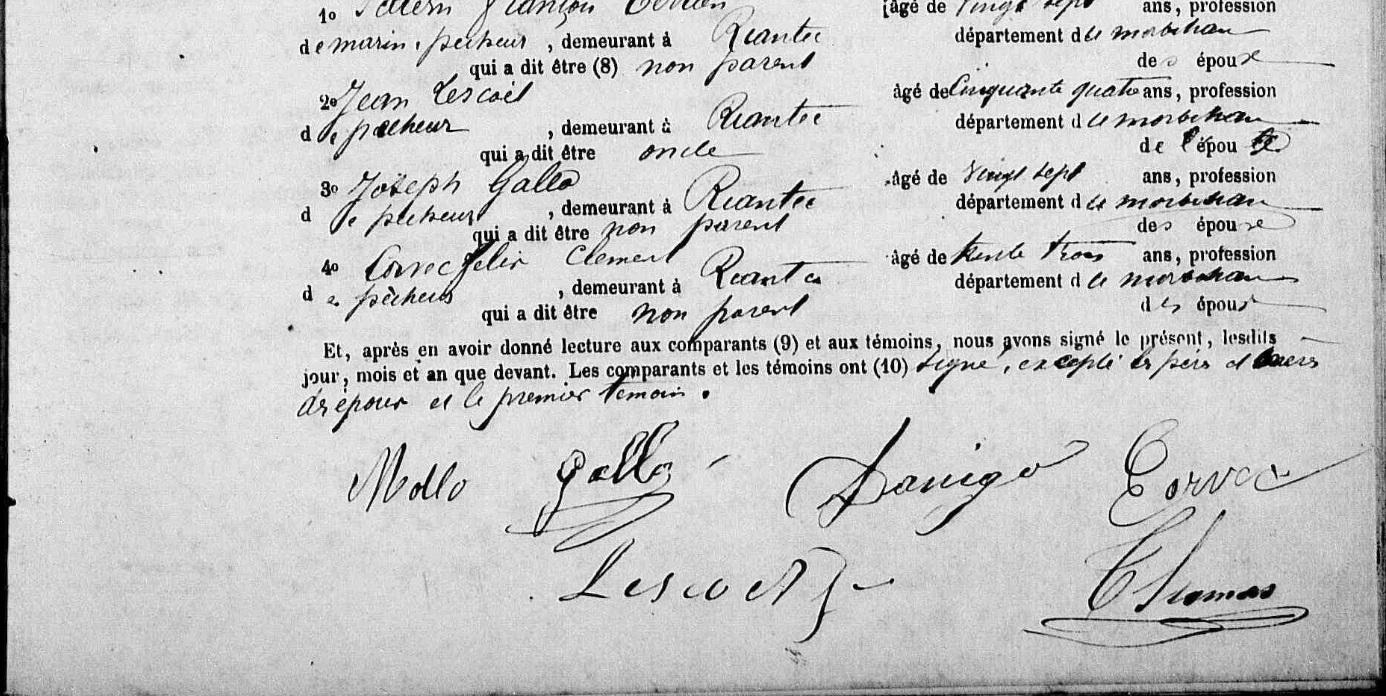 1º François âgé de vingt sept ans, profession
de marin pêcheur, demeurant à Riantec département du de morbihan
qui a dit être (8) non parent des époux
2º Jean Lescoët âgé de Cinquante quatre ans, profession
de pêcheur, demeurant à Riantec département d de morbihan
qui a dit être oncle de l'épou
3º Joseph Gallo âgé de vingt sept ans, profession
de pêcheur, demeurant à Riantec département d de morbihan
qui a dit être non parent des époux
4º Corvec felix Clement âgé de trente trois ans, profession
de pêcheur, demeurant à Riantec département d de morbihan
qui a dit être non parent des époux
Et, après en avoir donné lecture aux comparants (9) et aux témoins, nous avons signé le présent, lesdits
jour, mois et an que devant. Les comparants et les témoins ont (10) signé, excepté les pères et mères
des époux et le premier témoin.
Mollo Gallo Danigo Corvec
Lescoët Thomas